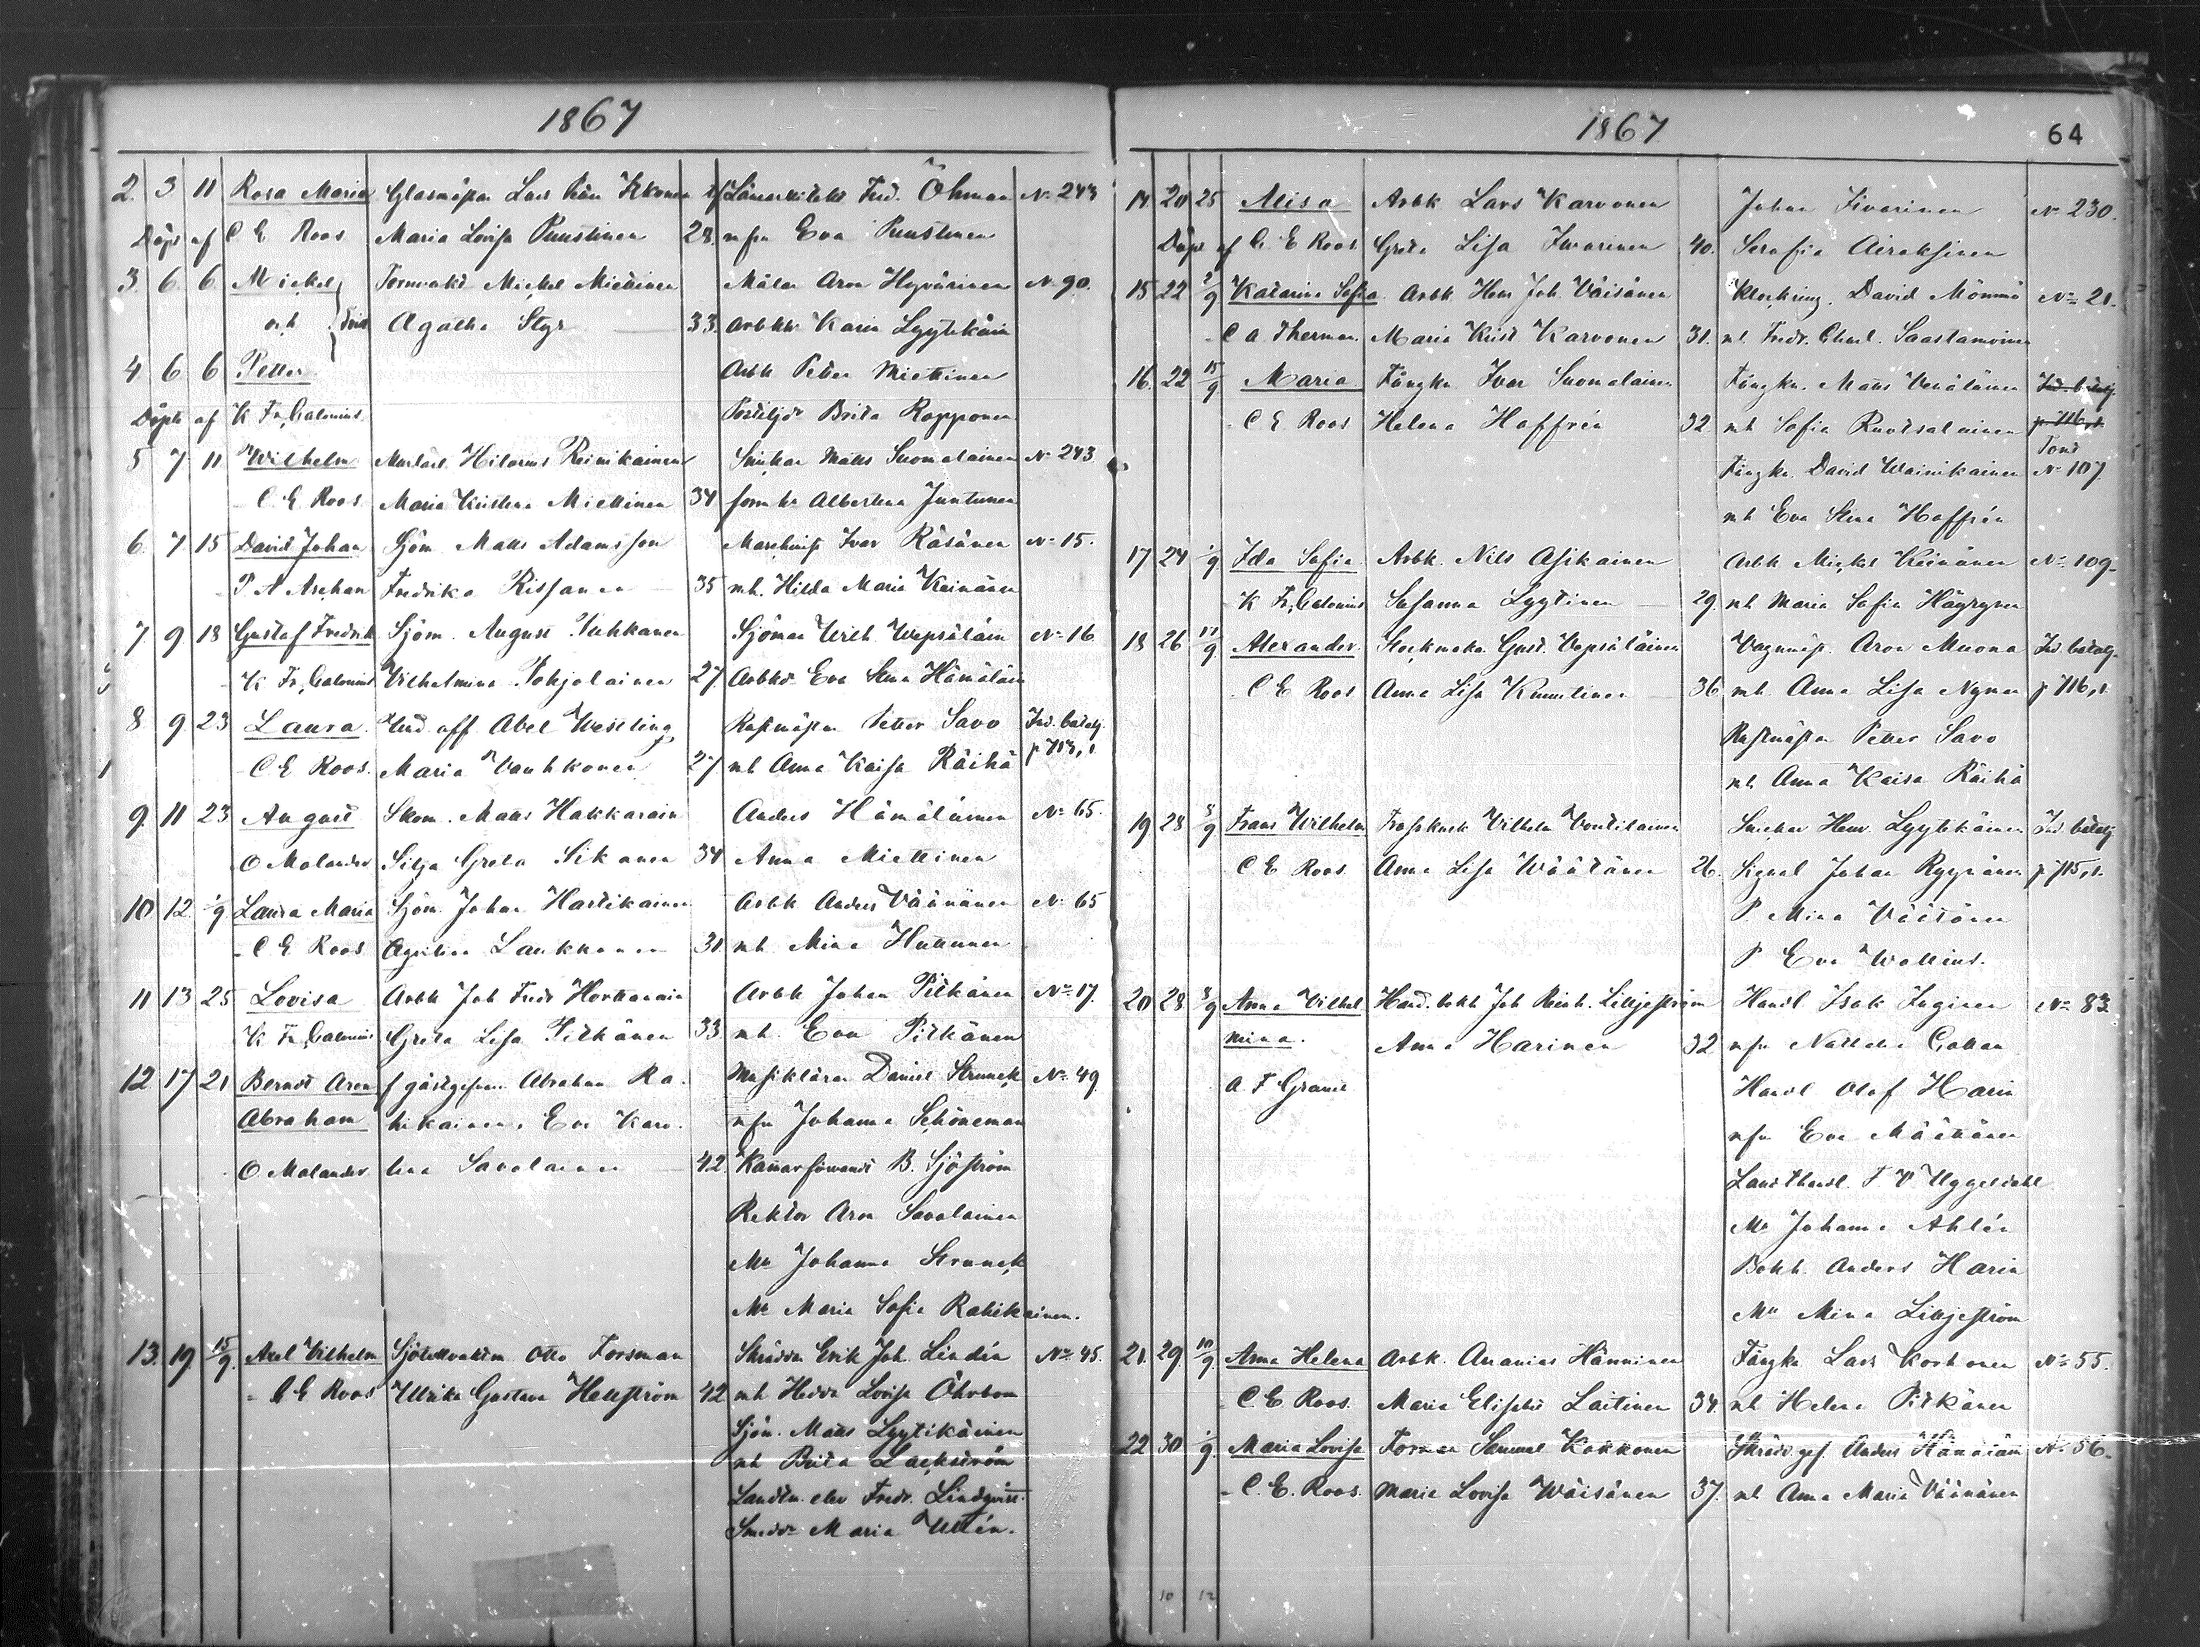 1867
2. 3 11 Rosa Maria Glasmäst. Lars Kokkonen Länsarkitekt Fred. Öhman No 243
Döpt af C E Roos Maria Lovisa Puustinen 28. m fru Eva Puustinen
3. 6. 6 Mickel Mickel Miettinen Målar Aron Hyvärinen No 90.
och Agatha Styf 33. Karin Lyytikäin
4 6 6 Petter. Arbk Petter Miettinen
Döpt af K Fr. Calonius. Brita Ropponen
5 7 11 Wilhelm Hilarius Reinikainen Snickar Matts Suomalainen No 243
- C. E. Roos. Maria Kristina Miettinen 34 Albertina Juntunen
6. 7 15 David Johan Sjöm Matts Adamsson Ivar Räsänen No 15.
- P A Aschan Fredrika Rissanen 35 mh. Hilda Maria Keinänen
7. 9 18 Gustaf Fredrik Sjöm. August Puhkanen Sjöman Wilh. Wepsäläin No 16
- K Fr. Calonius Vilhelmina Pohjolainen 27. Eva Stina Hämäläin
8. 9. 23 Laura. Und off Abel Westling Petter Savo Ind. batalj.
- C E Roos. Maria Vauhkonen 27 mh Anna Kaisa Räihä p 713, 1
9. 11 23 August Skom. Matts Hakkarain Anders Hämäläinen No 65.
O Molander Silja Greta Sikanen 34 Anna Miettinen
10 12 1/9 Laura Maria Sjöm. Johan Hartikainen Arbk Anders Väänänen No 65
- C E Roos Laukkanen 31 mh. Mina Huttunen
11 13 25 Lovisa Arbk Joh Fredr Arbk Johan Pitkänen No 17.
K Fr. Calonius Greta Lisa Pitkänen 33 mh. Eva Pitkänen
12 17 21 Berndt Aron f gästgifvaren Abraham Ra- Musiklärar Daniel Strunck No 49.
Abraham hikainen, Eva Karo- m fru Johanna Schöneman
O Molander lina Savolainen 42. B. Sjöström
Rektor Aron Savolainen
Me Johanna Strunck
Me Maria Sofia Rahikainen.
13. 19 15/9. Axel Vilhelm Otto Forsman Skräddar Erik Joh. Lindén No 45.
- C E Roos Ulrika Gustava Hellström 42 mh Hedda Lovisa Öhrbom
Sjöm. Matts Lyytikäinen
mh Brita Lackström
Landtm. elev Fredr. Lindqvist.
Maria Ullén.
1867 64
14. 20 25 Alisa Arbk Lars Karvonen Johan Iivarinen No 230.
Döpt af C. E Roos Greta Lisa Iivarinen 40. Serafia Airaksinen
15 22 2/9 Katarina Sofia Arbk Henr Joh. Väisänen David Mömmö No 21.
- C A Therman. Maria Krist Karvonen 31. mh. Fredr. Charl. Saastamoinen
16. 22 15/9 Maria Fångkn. Ivar Suomalainen Fångkn. Matts Venäläinen Ind. batalj.
- C E Roos Helena Hoffrén 32 mh Sofia Ruotsalainen p 716, 1.
Tons
Fångkn. David Wainikainen No 107
mh Eva Stina Hoffrén
17 24 1/9 Ida Sofia Arbk. Nils Asikainen Arbk Mickel Keinänen No 109.
- K Fr. Calonius Susanna Lyytinen 29. mh Maria Sofia Hägrgren
18 26 17/9 Alexander. Gust. Vepsäläinen Aron Muona Ind. batalj.
- C E Roos Anna Lisa Kinnunen 36 mh Anna Lisa Nyman p 716, 1.
Petter Savo
mh Anna Kaisa Räihä
19 28 8/9 Frans Wilhelm Vilhelm Voutilainen Snickar Henr. Lyytikäinen Ind. batalj
C E Roos Anna Lisa Wäätänen 26. Johan Ryynänen p 715, 1.
P Mina Väätänen
P Eva Wallius.
20 28 8/9 Anna Vilhel- Hand. bokh Joh Reinh. Lilljeström Handl Isak Inginen No 83
mina. Anna Harinen 32 m fru Nathalia Gohan
A. F Granit Handl Olof Harin
m fru Eva Määttänen
Landthandl. F V Uggeldahl
Me Johanna Ahlén
Bokh. Anders Harin
Me Mina Lilljeström
21. 29 10/9 Anna Helena Arbk. Ananias Hänninen Fångkn Lars Korhonen No 55.
- C. E Roos. Maria Elisabet Laitinen 34. mh Helena Pitkänen
22 30 1/9. Maria Lovisa Samuel Kokkonen Skräd. ges. Anders Hämäläin No 56.
- C. E. Roos. Maria Lovisa Wäisänen 37. mh Anna Maria Väänänen
10 12